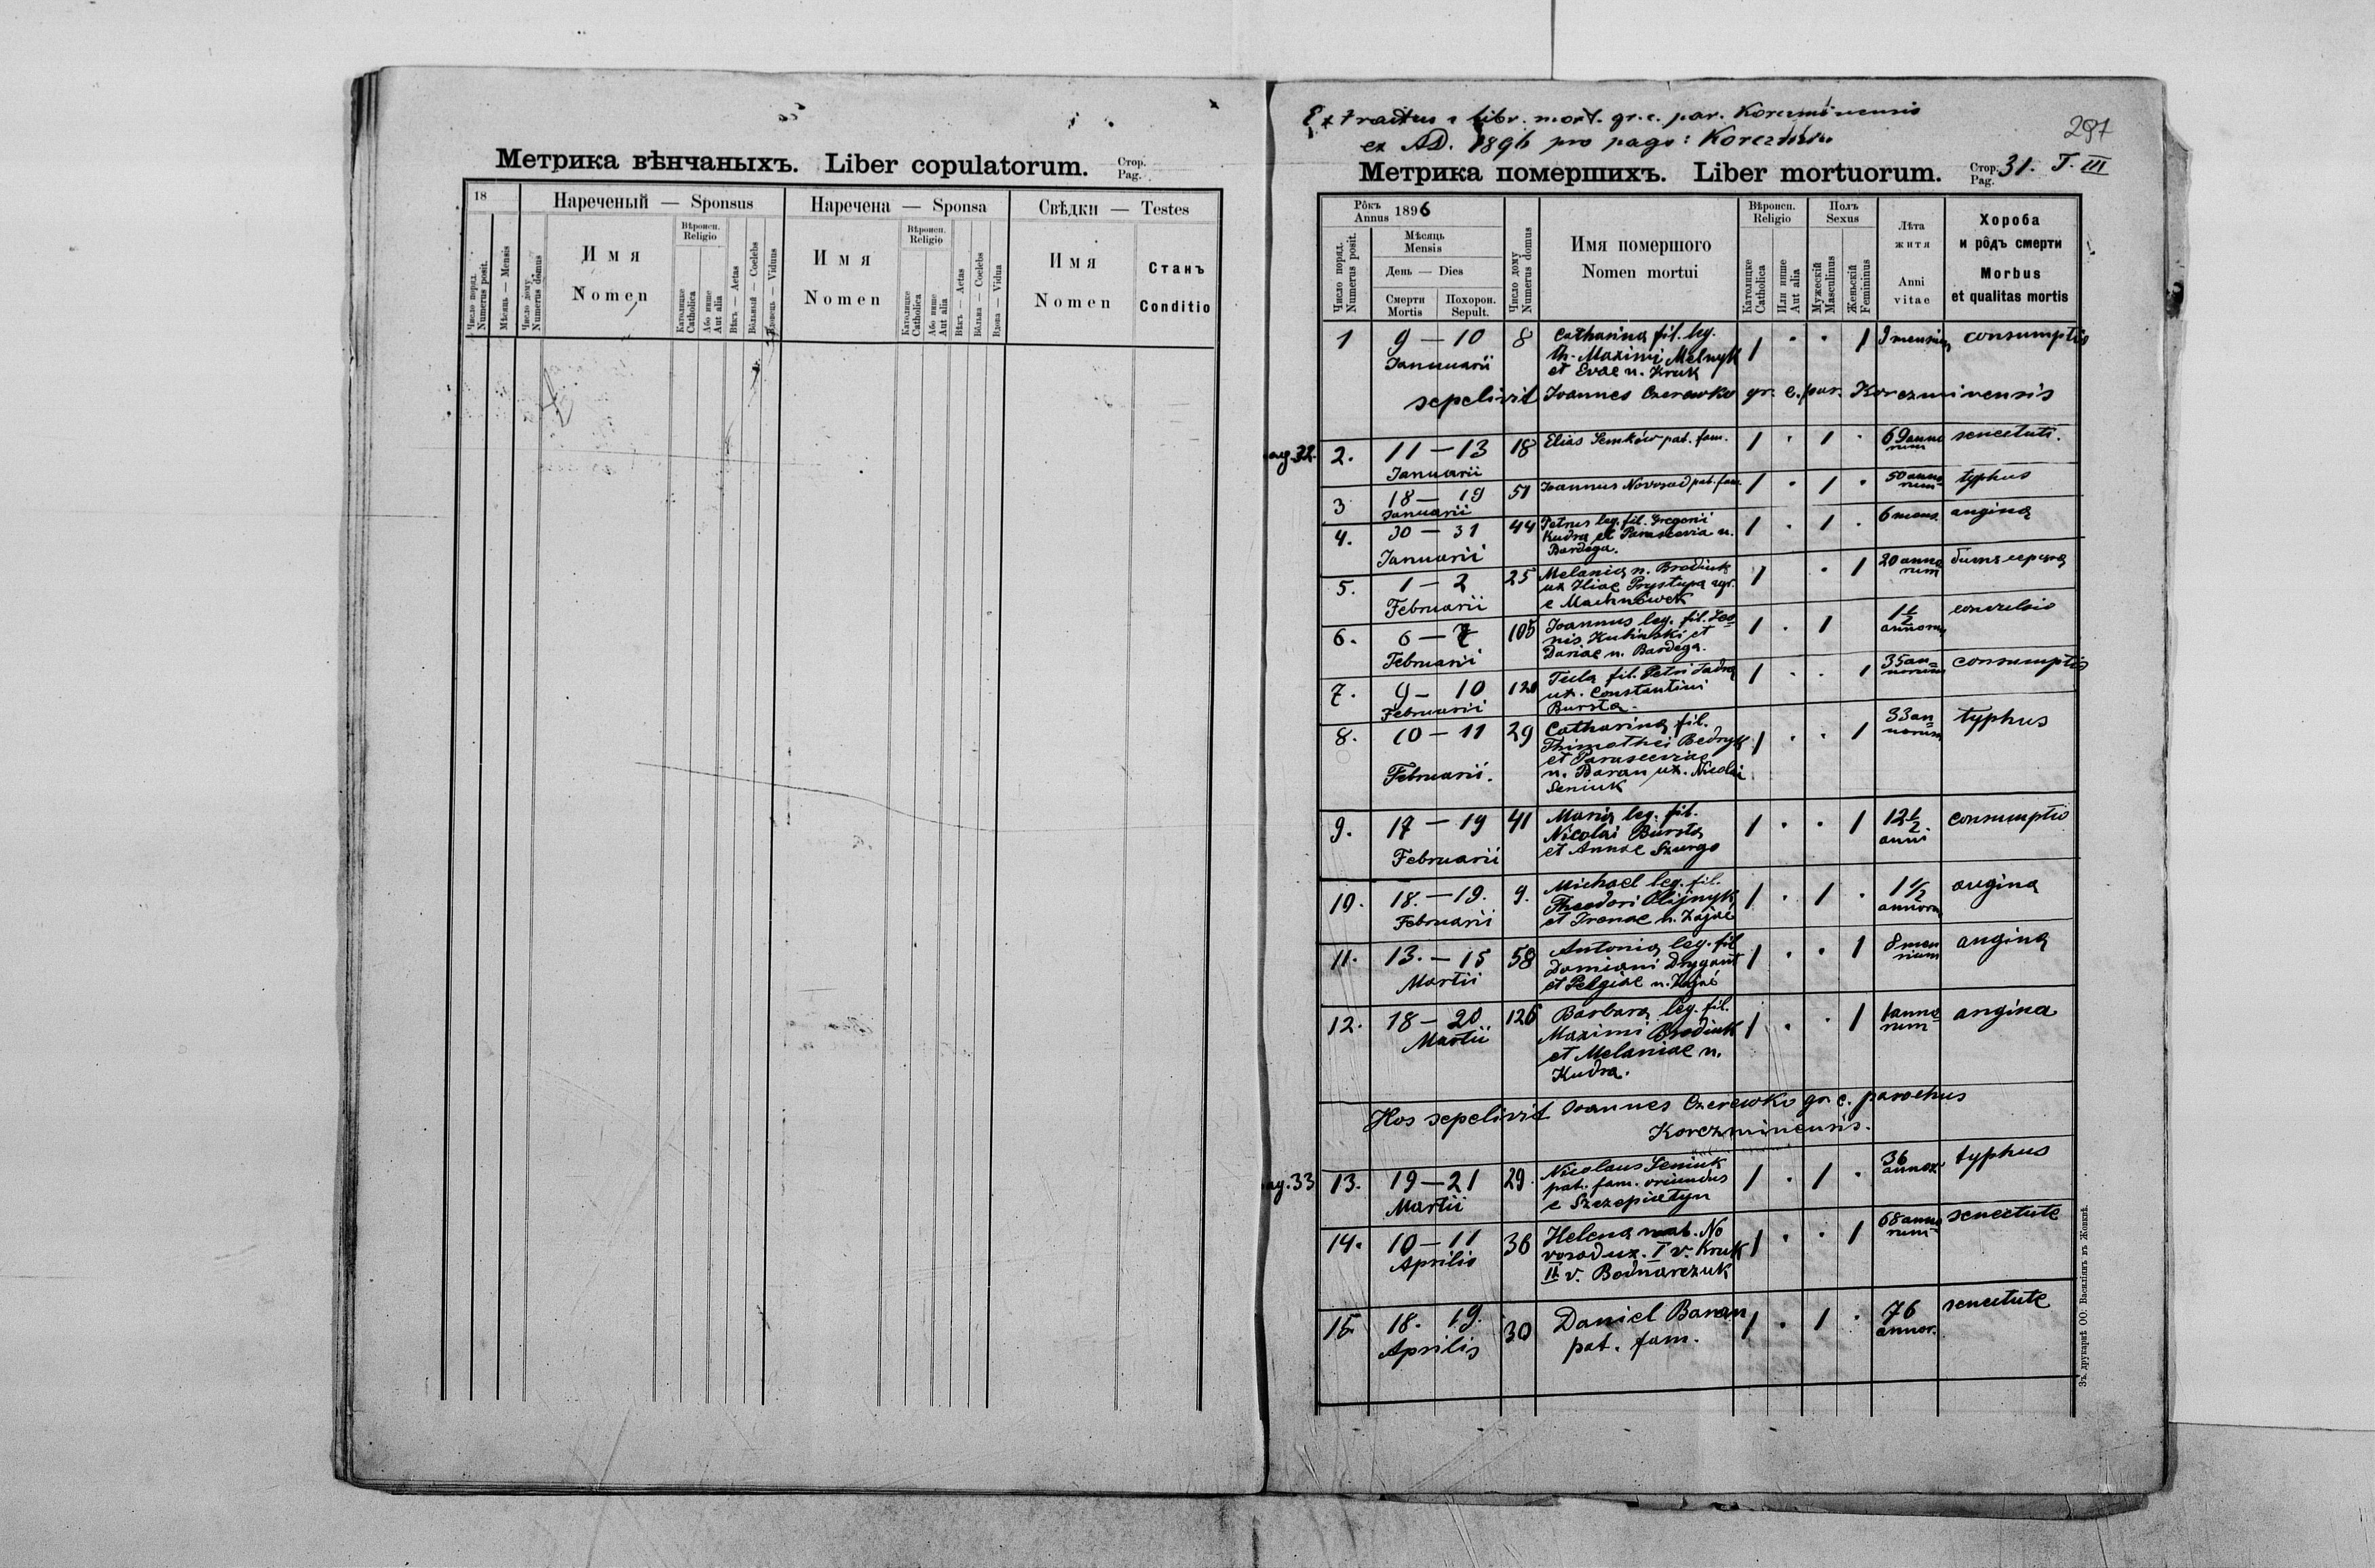 Метрика вѣнчаныхъ. Liber copulatorum. Стор. Pag.
18
Нареченый — Sponsus
Наречена — Sponsa
Свѣдки — Testes
Число поряд. Numerus posit.
Мѣсяць — Mensis
Число дому Numerus domus
Имя
Nomen
Вѣроисп. Religio
Католицке Catholica
Або инше Aut alia
Вѣкъ — Aetas
Вôльный — Coelebs
Вдовець — Viduus
Имя
Nomen
Вѣроисп. Religio
Католицке Catholica
Або инше Aut alia
Вѣкъ — Aetas
Вôльна — Coelebs
Вдова — Vidua
Имя
Nomen
Станъ
Conditio
Extractus e libr. mort. gr. c. par. Korczminensis
ex AD. 1896 pro pago: Korczmin
297
Метрика помершихъ. Liber mortuorum. Стор. Pag. 31. T. III
Рôкъ Annus 1896
Число поряд. Numerus posit.
Мѣсяць Mensis
День — Dies
Смерти Mortis
Похорон. Sepult.
Число дому Numerus domus
Имя помершого
Nomen mortui
Вѣроисп. Religio
Католицке Catholica
Или инше Aut alia
Полъ Sexus
Мужескій Masculinus
Женьскій Femininus
Лѣта житя
Anni vitae
Хороба
и рôдъ смерти
Morbus
et qualitas mortis
1 9 — 10 8 Catharina fil. leg. 1 · · 1 9 mensium consumptio
Januarii Th. Maximi Melnyk
et Evae n. Kruk
sepelivit Joannes Czerewko gr. c. par. Korczminensis
pag. 32. 2. 11 — 13 18 Elias Semków pat. fam. 1 · 1 · 69 anno
Januarii rum senectuti.
3 18 — 19 51 Joannus Novosad pat. fam. 1 · 1 · 50 anno typhus
Januarii rum
4. 30 — 31 44 Petrus leg. fil. Gregorii 1 · 1 · 6 mens. angina
Januarii Kudra et Parascevia n.
Bardega.
5. 1 — 2 25 Melania n. Brodiuk 1 · 1 20 anno
Februarii ux Iliae Prystupa agr. rum
e Machnówek
6. 6 — 7 105 Joannus leg. fil. Leo 1 · 1 1 1/2 convulsio
Februarii nis Kulinski et annorum
Dariae n. Bardega.
7. 9 — 10 121 Tecla fil. Petri 1 · · 1 35 an consumptio
Februarii ux. Constantini norum
Bursta.
8. 10 — 11 29 Catharina fil. 1 · · 1 33 an typhus
Februarii. Thimothei Bednyk norum
et Parasceviae
n. Baran ux. Nicolai
Seniuk
9. 17 — 19 41 Maria leg. fil. 1 · · 1 12 1/2 consumptio
Februarii Nicolai Bursta anni
et Annae Szurgo
10. 18. — 19. 9. Michael leg. fil. 1 · 1 · 1 1/2 angina
Februarii Theodori Olijnyk annorum
et Irenae n. Zając
11. 13. — 15 58 Antonia leg. fil 1 · · 1 8 men angina
Martii Damiani Drygant sium
et Pelgiae n. Zając
12. 18 — 20 126 Barbara leg. fil. 1 · · 1 1 anno angina
Martii Maximi Brodiuk rum
et Melaniae n.
Kudra.
Hos sepelivit Joannes Czerewko gr. c. parochus
Korczminensis.
pag. 33 13. 19 — 21 29. Nicolaus Seniuk 1 · 1 · 36 typhus
Martii pat. fam. oriundus annor.
e Szczepiatyn
14. 10 — 11 36 Helena nat. No 1 · · 1 68 anno senectute
Aprilis vosad ux. I v. Kruk rum
II v. Bodnarczuk
15. 18. 19. 30 Daniel Baran 1 · 1 · 76 senectute
Aprilis pat. fam. annor.
Зъ друкарнѣ ОО. Василіянъ въ Жовквѣ.